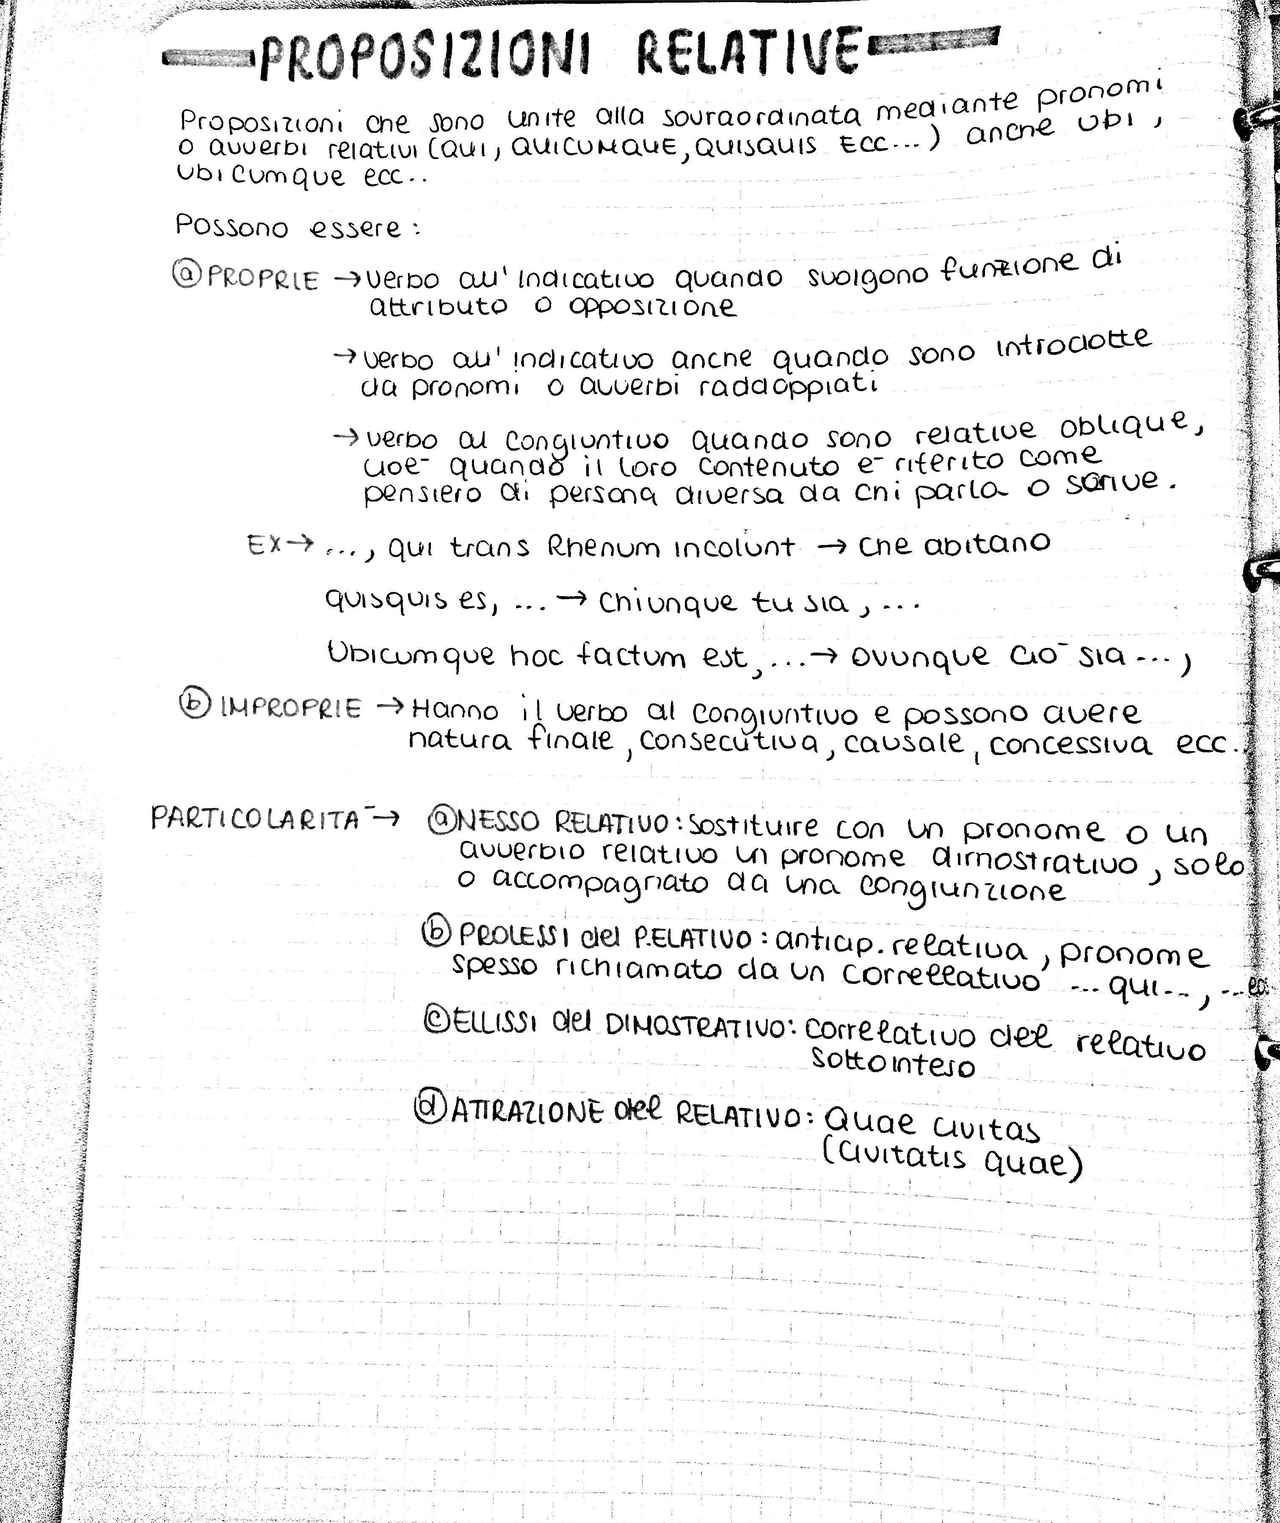 PROPOSIZIONI RELATIVE
Proposizioni che sono unite alla sovraordinata mediante pronomi
o avverbi relativi (QUI, QUICUMQUE, QUISQUIS ECC...) anche UBI,
Ubicumque ecc..
Possono essere:
ⓐ PROPRIE → verbo all'indicativo quando svolgono funzione di
attributo o opposizione
→ verbo all'indicativo anche quando sono introdotte
da pronomi o avverbi raddoppiati
→ verbo al congiuntivo quando sono relative oblique,
cioè quando il loro contenuto è riferito come
pensiero di persona diversa da chi parla o scrive.
EX → ..., qui trans Rhenum incolunt → che abitano
quisquis es, ... → chiunque tu sia, ...
Ubicumque hoc factum est, ... → ovunque ciò sia ...,
ⓑ IMPROPRIE → Hanno il verbo al congiuntivo e possono avere
natura finale, consecutiva, causale, concessiva ecc.
PARTICOLARITÀ → ⓐ NESSO RELATIVO: sostituire con un pronome o un
avverbio relativo un pronome dimostrativo, solo
o accompagnato da una congiunzione
ⓑ PROLESSI del RELATIVO: anticip. relativa, pronome
spesso richiamato da un correlativo ... qui..., ...
ⓒ ELLISSI del DIMOSTRATIVO: correlativo del relativo
sottointeso
ⓓ ATTRAZIONE del RELATIVO: Quae civitas
(civitatis quae)